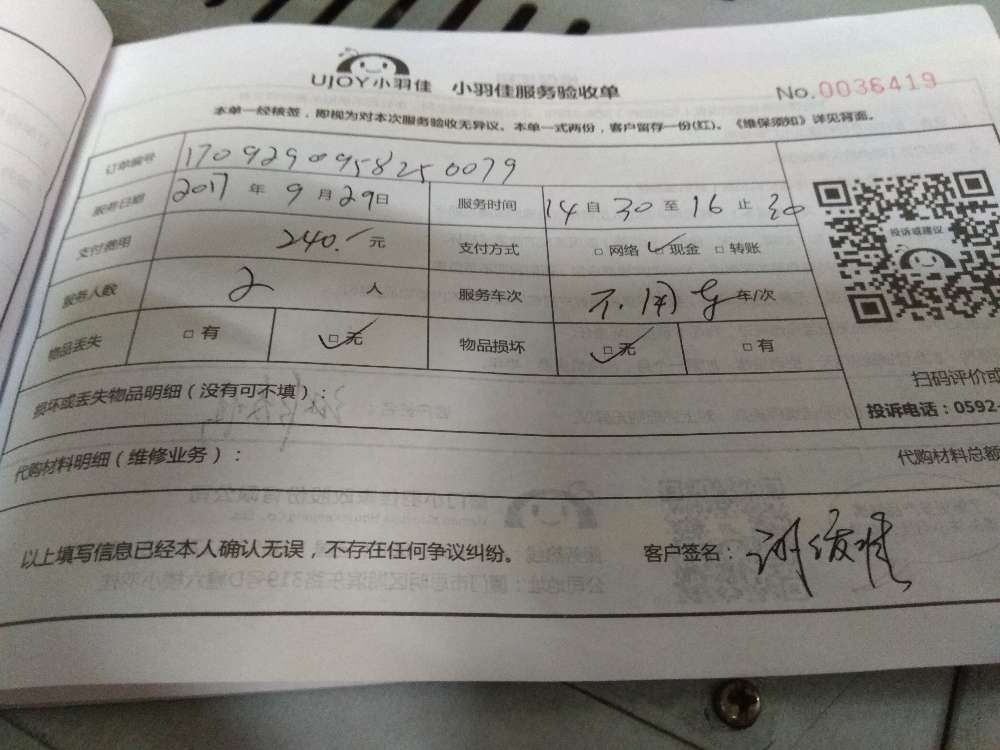 UJOY小羽佳 小羽佳服务验收单 No.0036419
本单一经核签，即视为对本次服务验收无异议。本单一式两份，客户留存一份(红)。《维保须知》详见背面。
订单编号 170929095825 0079
服务日期 2017 年 9 月 29日 服务时间 14 自 30 至 16 止 30
投诉或建议
支付费用 240.- 元 支付方式 □网络 ☑现金 □转账
服务人数 2 人 服务车次 车/次
物品丢失 □有 ☑无 物品损坏 ☑无 □有
扫码评价或
损坏或丢失物品明细（没有可不填）：
投诉电话：0592-
代购材料明细（维修业务）： 代购材料总额
以上填写信息已经本人确认无误，不存在任何争议纠纷。 客户签名：